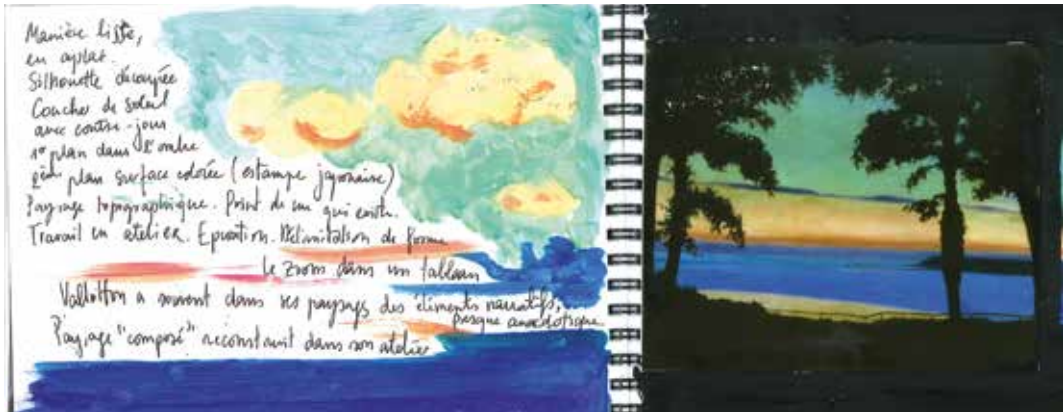 Manière lisse,
en aplat.
Silhouette découpée
Coucher de soleil
avec contre-jour
1er plan dans l'ombre
2ème plan surface colorée (estampe japonaise)
Paysage topographique. Point de vue qui existe.
Travail en atelier. Epuration. Délimitation de forme
le zoom dans un tableau
Vallotton a souvent dans ses paysages des éléments narratifs,
presque anecdotique
Paysage "composé" reconstruit dans son atelier